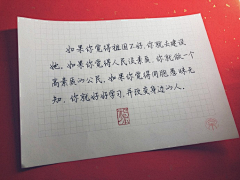 如果你觉得祖国不好，你就去建设
她。如果你觉得人民没素质，你就做一个
高素质的公民。如果你觉得同胞愚昧无
知，你就好好学习，并改变身边的人。